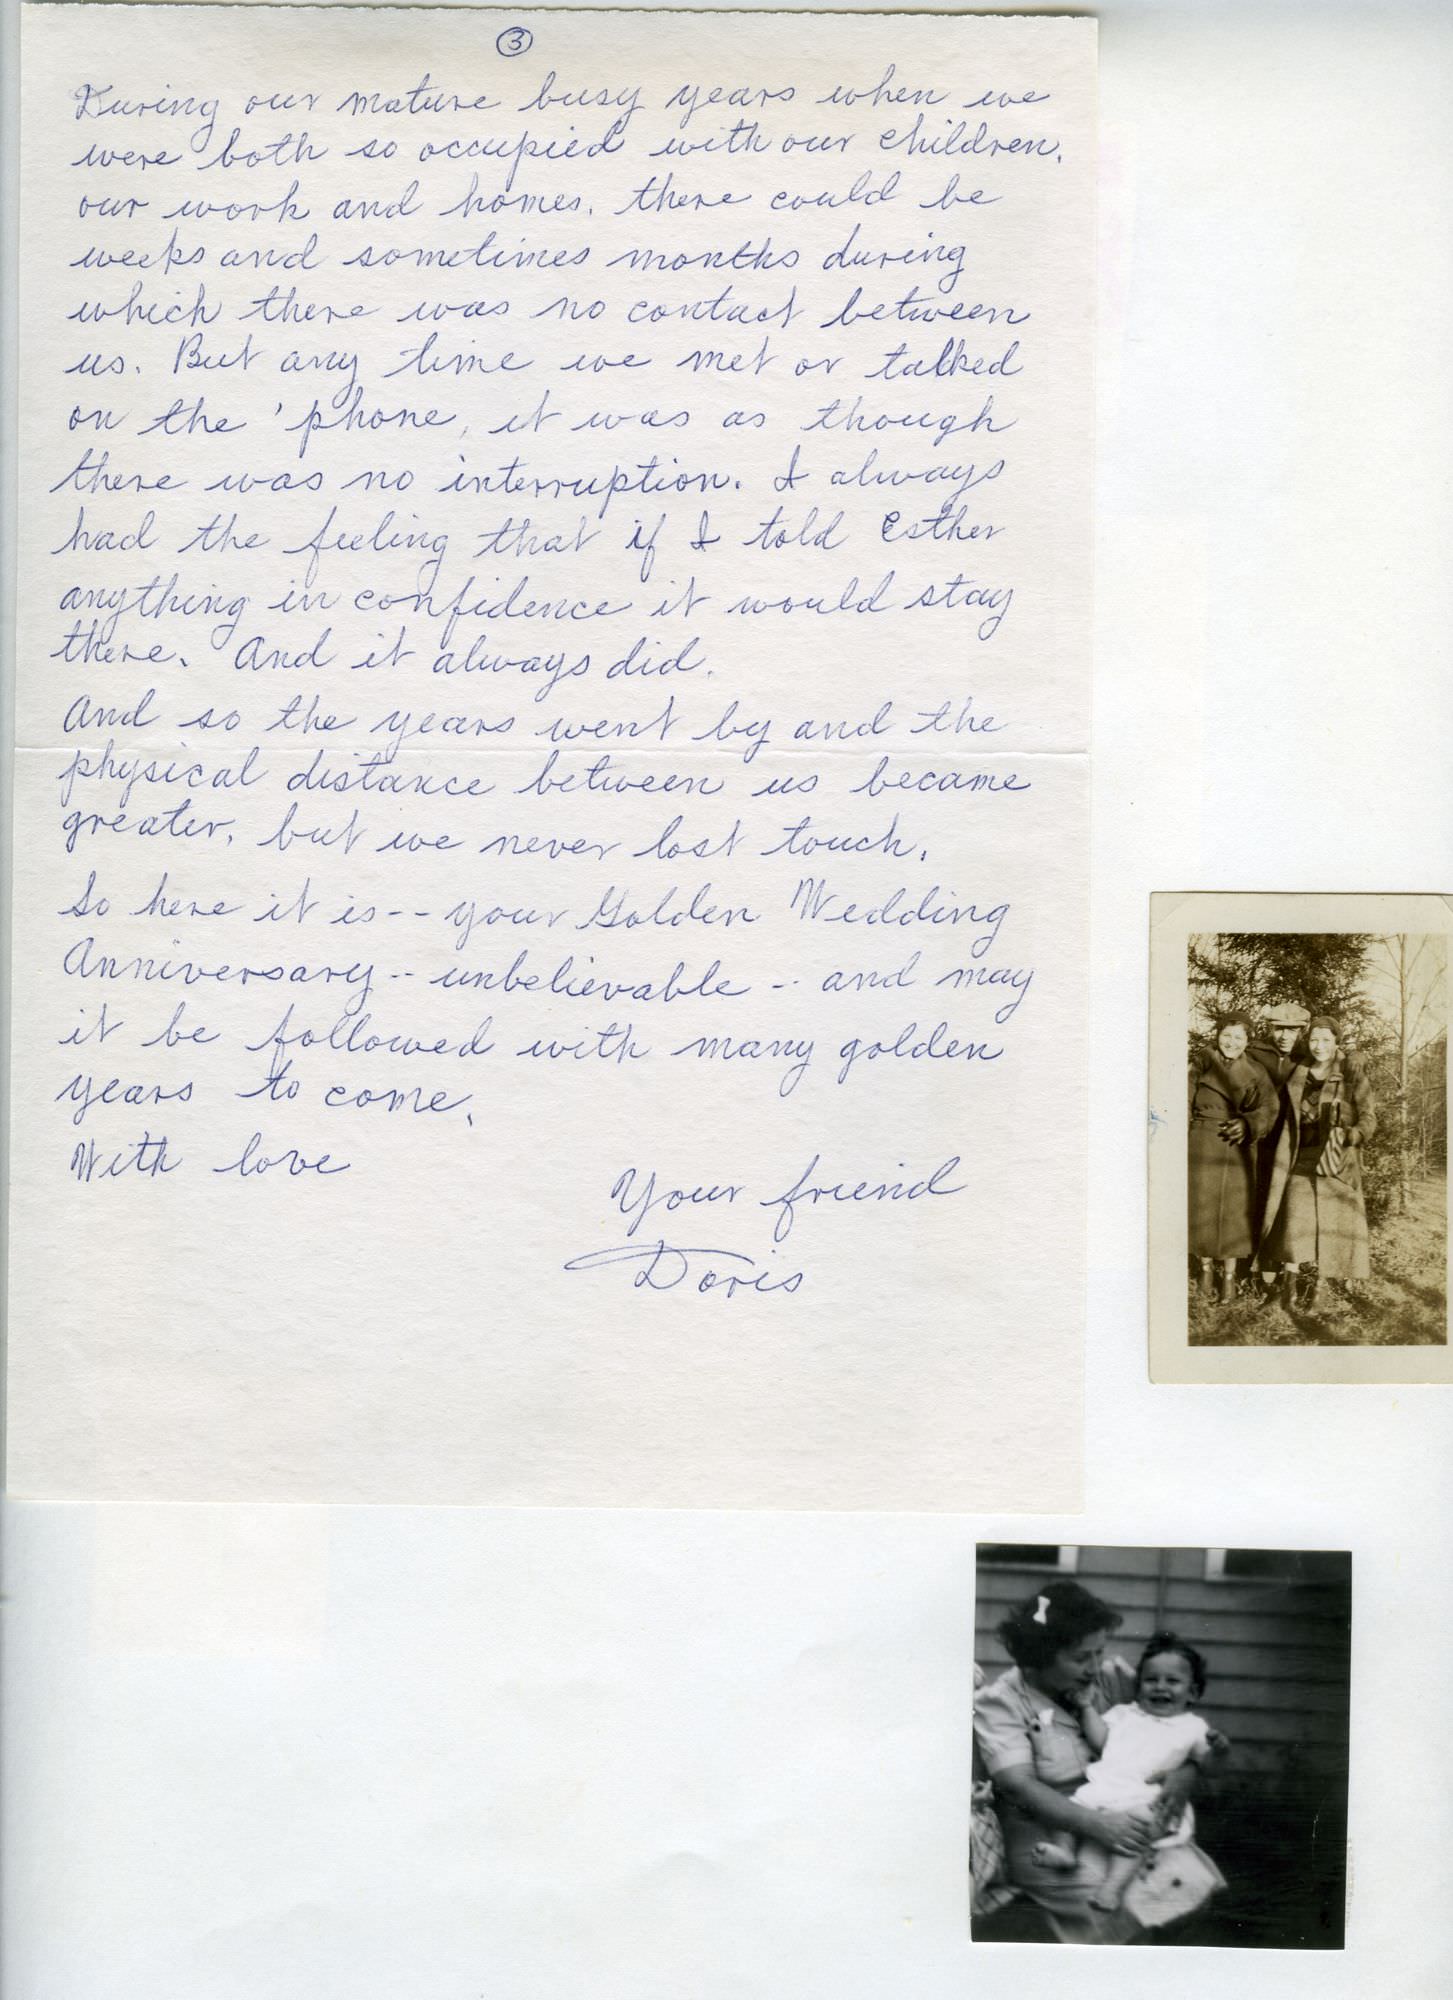 3
During our mature busy years when we
were both so occupied with our children,
our work and homes, there could be
weeks and sometimes months during
which there was no contact between
us. But any time we met or talked
on the 'phone, it was as though
there was no interruption. I always
had the feeling that if I told Esther
anything in confidence it would stay
there. And it always did.
And so the years went by and the
physical distance between us became
greater, but we never lost touch.
So here it is -- your Golden Wedding
Anniversary -- unbelievable -- and may
it be followed with many golden
years to come.
With love
Your friend
Doris